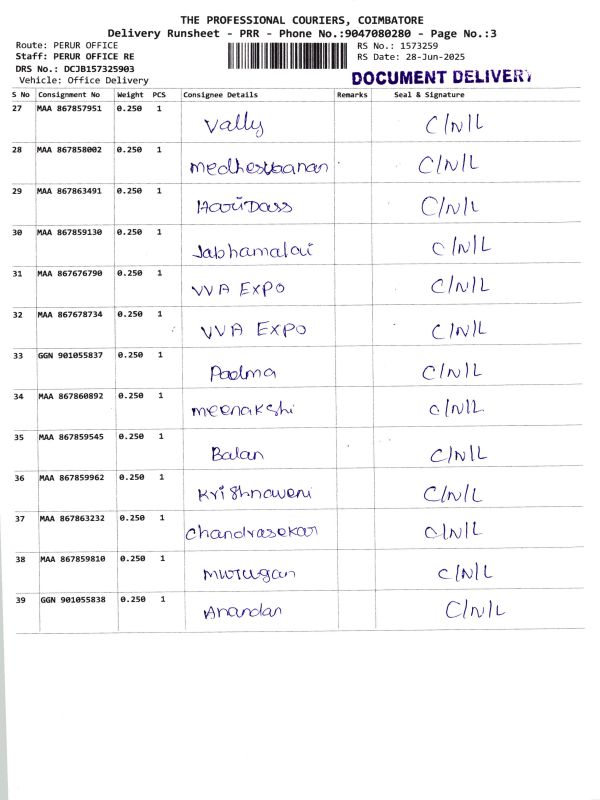 THE PROFESSIONAL COURIERS, COIMBATORE
Delivery Runsheet - PRR - Phone No.:9047080280 - Page No.:3
Route: PERUR OFFICE RS No.: 1573259
Staff: PERUR OFFICE RE RS Date: 28-Jun-2025
DRS No.: DCJB157325903
Vehicle: Office Delivery DOCUMENT DELIVERY
S No Consignment No Weight PCS Consignee Details Remarks Seal & Signature
27 MAA 867857951 0.250 1 Vally C/N/L
28 MAA 867858002 0.250 1 C/N/L
29 MAA 867863491 0.250 1 HariDass C/N/L
30 MAA 867859130 0.250 1 Jabhamalai C/N/L
31 MAA 867676790 0.250 1 VVA EXPO C/N/L
32 MAA 867678734 0.250 1 VVA EXPO C/N/L
33 GGN 901055837 0.250 1 Padma C/N/L
34 MAA 867860892 0.250 1 meenakshi C/N/L
35 MAA 867859545 0.250 1 Balan C/N/L
36 MAA 867859962 0.250 1 Krishnaveni C/N/L
37 MAA 867863232 0.250 1 chandrasekar C/N/L
38 MAA 867859810 0.250 1 murugan C/N/L
39 GGN 901055838 0.250 1 Anandan C/N/L